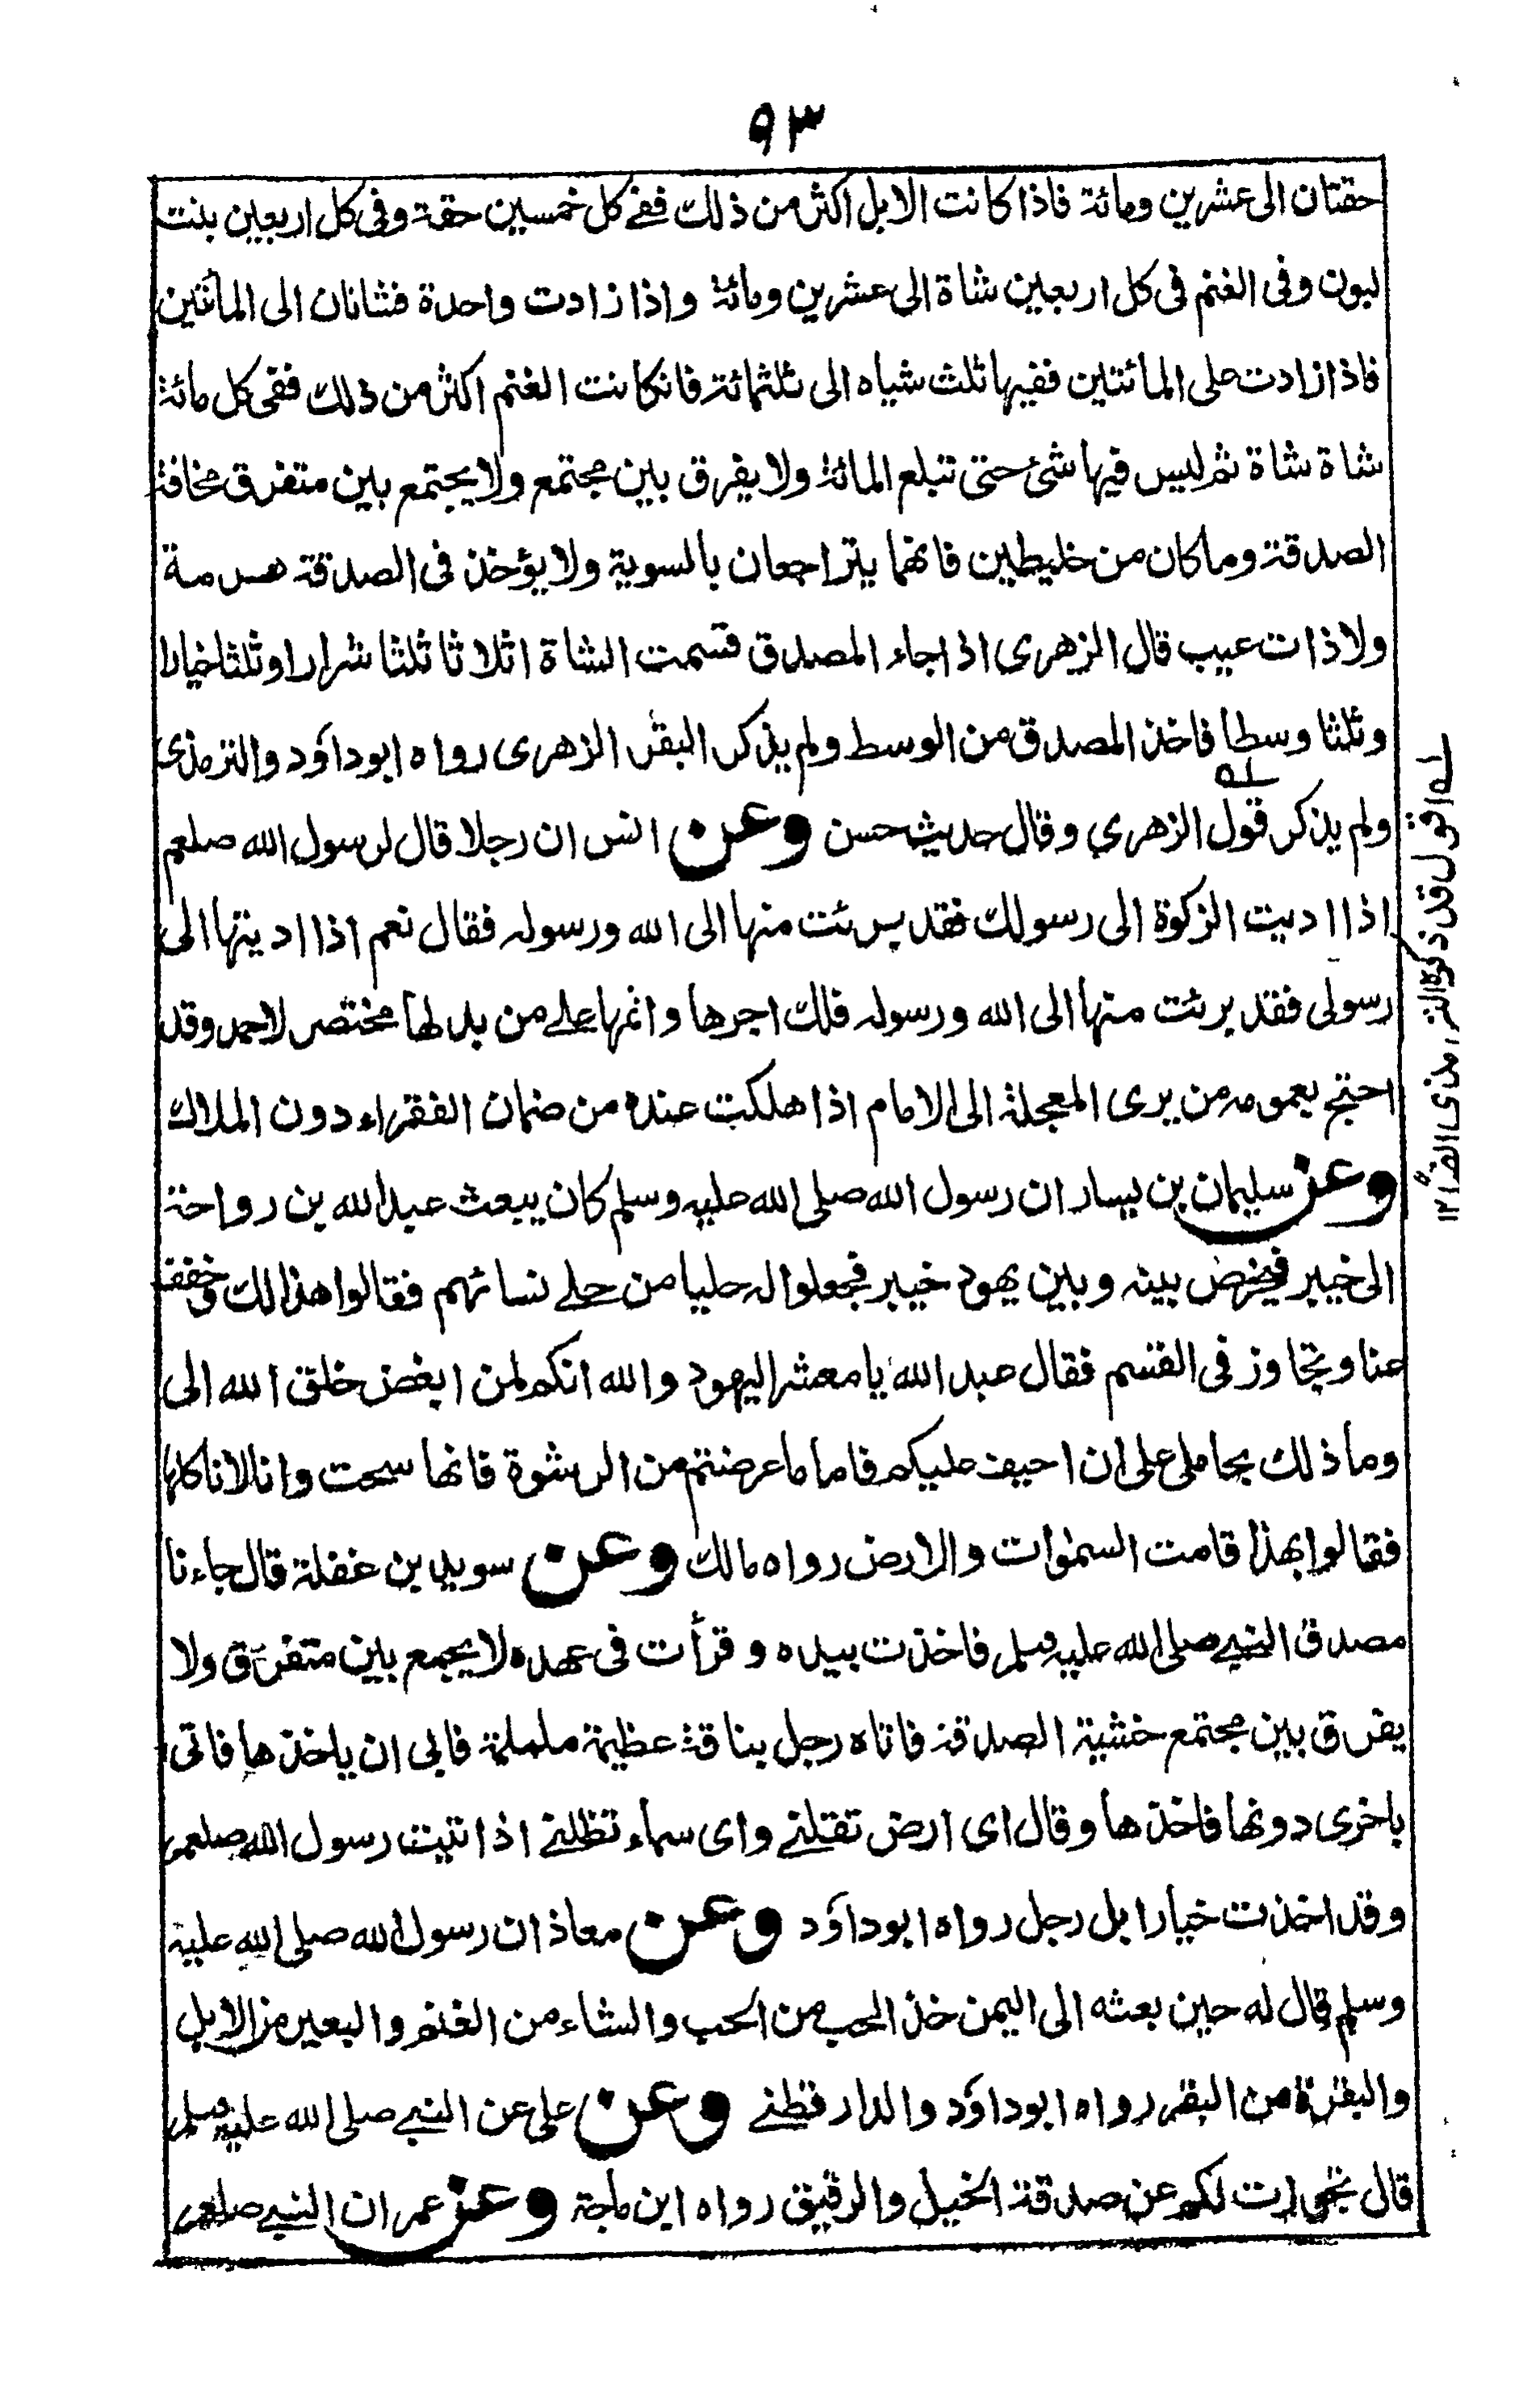 ٩٣
حقتان الى عشرين ومائة فاذا كانت الابل اكثر من ذلك ففى كل خمسين حقة وفى كل اربعين بنت
لبون وفى الغنم فى كل اربعين شاة الى عشرين ومائة واذا زادت واحدة فشاتان الى المائتين
فاذا زادت على المائتين ففيها ثلث شياه الى ثلثمائة فانكانت الغنم اكثر من ذلك ففى كل مائة
شاة شاة ثم ليس فيها شئ حتى تبلع المائة ولا يفرق بين مجتمع ولا يجتمع بين متفرق مخافة
الصدقة وماكان من خليطين فانهما يتراجعان بالسوية ولا يؤخذ فى الصدقة هرمة
ولا ذات عيب قال الزهرى اذا جاء المصدق قسمت الشاة اثلاثا ثلثا شرارا وثلثا خيارا
وثلثا وسطا فاخذ المصدق من الوسط ولم يذكر البقر الزهرى رواه ابوداؤد والترمذى
ولم يذكر قول الزهري وقال حديث حسن وعن انس ان رجلا قال لرسول الله صلعم
اذا اديت الزكوة الى رسولك فقد برئت منها الى الله ورسوله فقال نعم اذا اديتها الى
رسولى فقد برئت منها الى الله ورسوله فلك اجرها واثمها على من بدلها مختصر لاحمد وقد
احتج بعمومه من يرى المعجلة الى الامام اذا هلكت عنده من ضمان الفقراء دون الملاك
وعن سليمان بن يسار ان رسول الله صلى الله عليه وسلم كان يبعث عبد الله بن رواحة
الى خيبر فيخرص بينه وبين يهود خيبر فجعلوا له حليا من حلے نسائهم فقالوا هذا لك وخفف
عنا وتجاوز فى القسم فقال عبد الله يا معشر اليهود والله انكم لمن ابغض خلق الله الى
وما ذلك بحاملى على ان احيف عليكم فاما ما عرضتم من الرشوة فانها سحت وانا لا ناكلها
فقالوا بهذا قامت السموات والارض رواه مالك وعن سويد بن غفلة قال جاءنا
مصدق النبے صلى الله عليه وسلم فاخذت بيده وقرأت فى عهده لا يجمع بين متفرق ولا
يفرق بين مجتمع خشية الصدقة فاتاه رجل بناقة عظيمة ململمة فابى ان ياخذها فاتى
باخرى دونها فاخذها وقال اى ارض تقلنے واى سماء تظلنے اذا اتيت رسول الله صلعم
وقد اخذت خيار ابل رجل رواه ابوداؤد وعن معاذ ان رسول الله صلى الله عليه
وسلم قال له حين بعثه الى اليمن خذ الحب من الحب والشاء من الغنم والبعير من الابل
والبقرة من البقر رواه ابوداؤد والدارقطنے وعن على عن النبے صلى الله عليه وسلم
قال تجوزت لكم عن صدقة الخيل والرقيق رواه ابن ماجة وعن عمر ان النبے صلعم
له اقول قد ذكره الترمذى ١٢